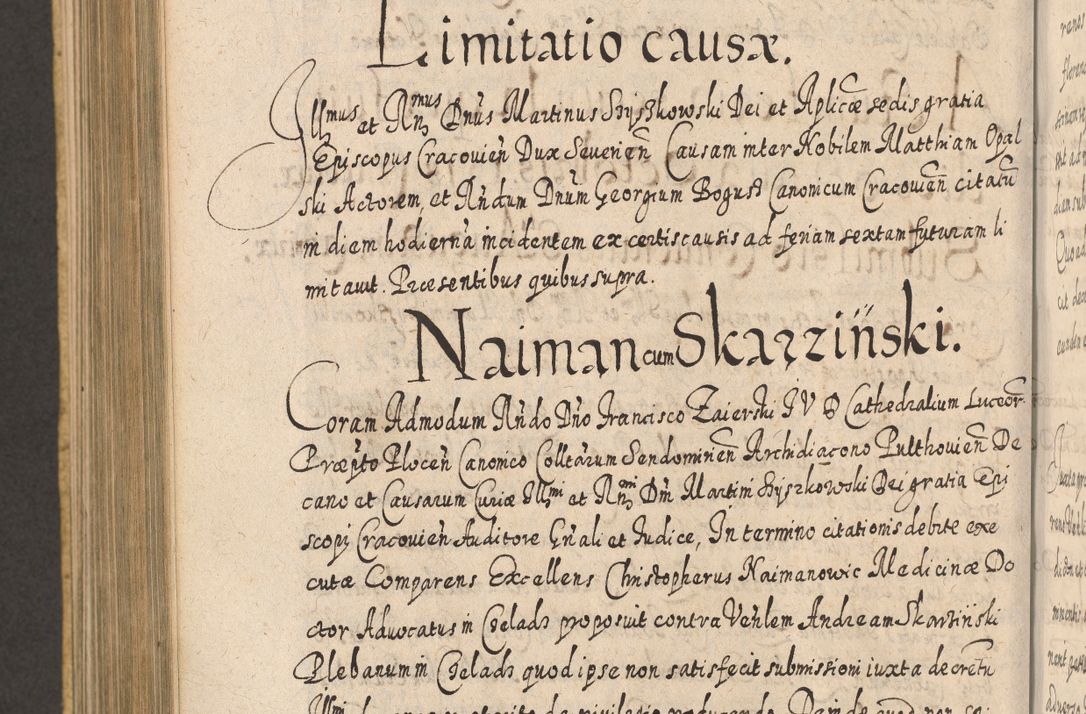 Limitatio causæ.
Illmus et Rndmus Dnus Martinus Szyszkowski Dei et Aplicæ sedis gratia
Episcopus Cracovien Dux Severien Causam inter Nobilem Matthiam Opal
ski Actorem, et Rndum Dnum Georgium Bogusz Canonicum Cracovien citatu
in diem hodierna incidentem ex certis causis ad feriam sextam futuram li
mitavit. Præsentibus quibus supra.
Naiman cum Skarziński.
Coram Admodum Rndo Dno Francisco Zaierski I V D Cathedralium Luceor
Præpto Plocen Canonico Colltarum Sendomirien Archidiacono Pulthovien De
cano et Causarum Curiæ Illmi et Rndmi Dni Martini Szyszkowski Dei gratia Epi
scopi Cracovien Auditore Gnali et Iudice, In termino citationis debite exe
cutæ Comparens Excellens Christopherus Naimanowic Medicinæ Do
ctor Advocatus in Czeladz proposuit contra Venlem Andream Skarziński
Plebanum in Czeladz quod ipse non satisfecit submissioni iuxta decretu
Illmi de privilegio producendo. Dein de quod non